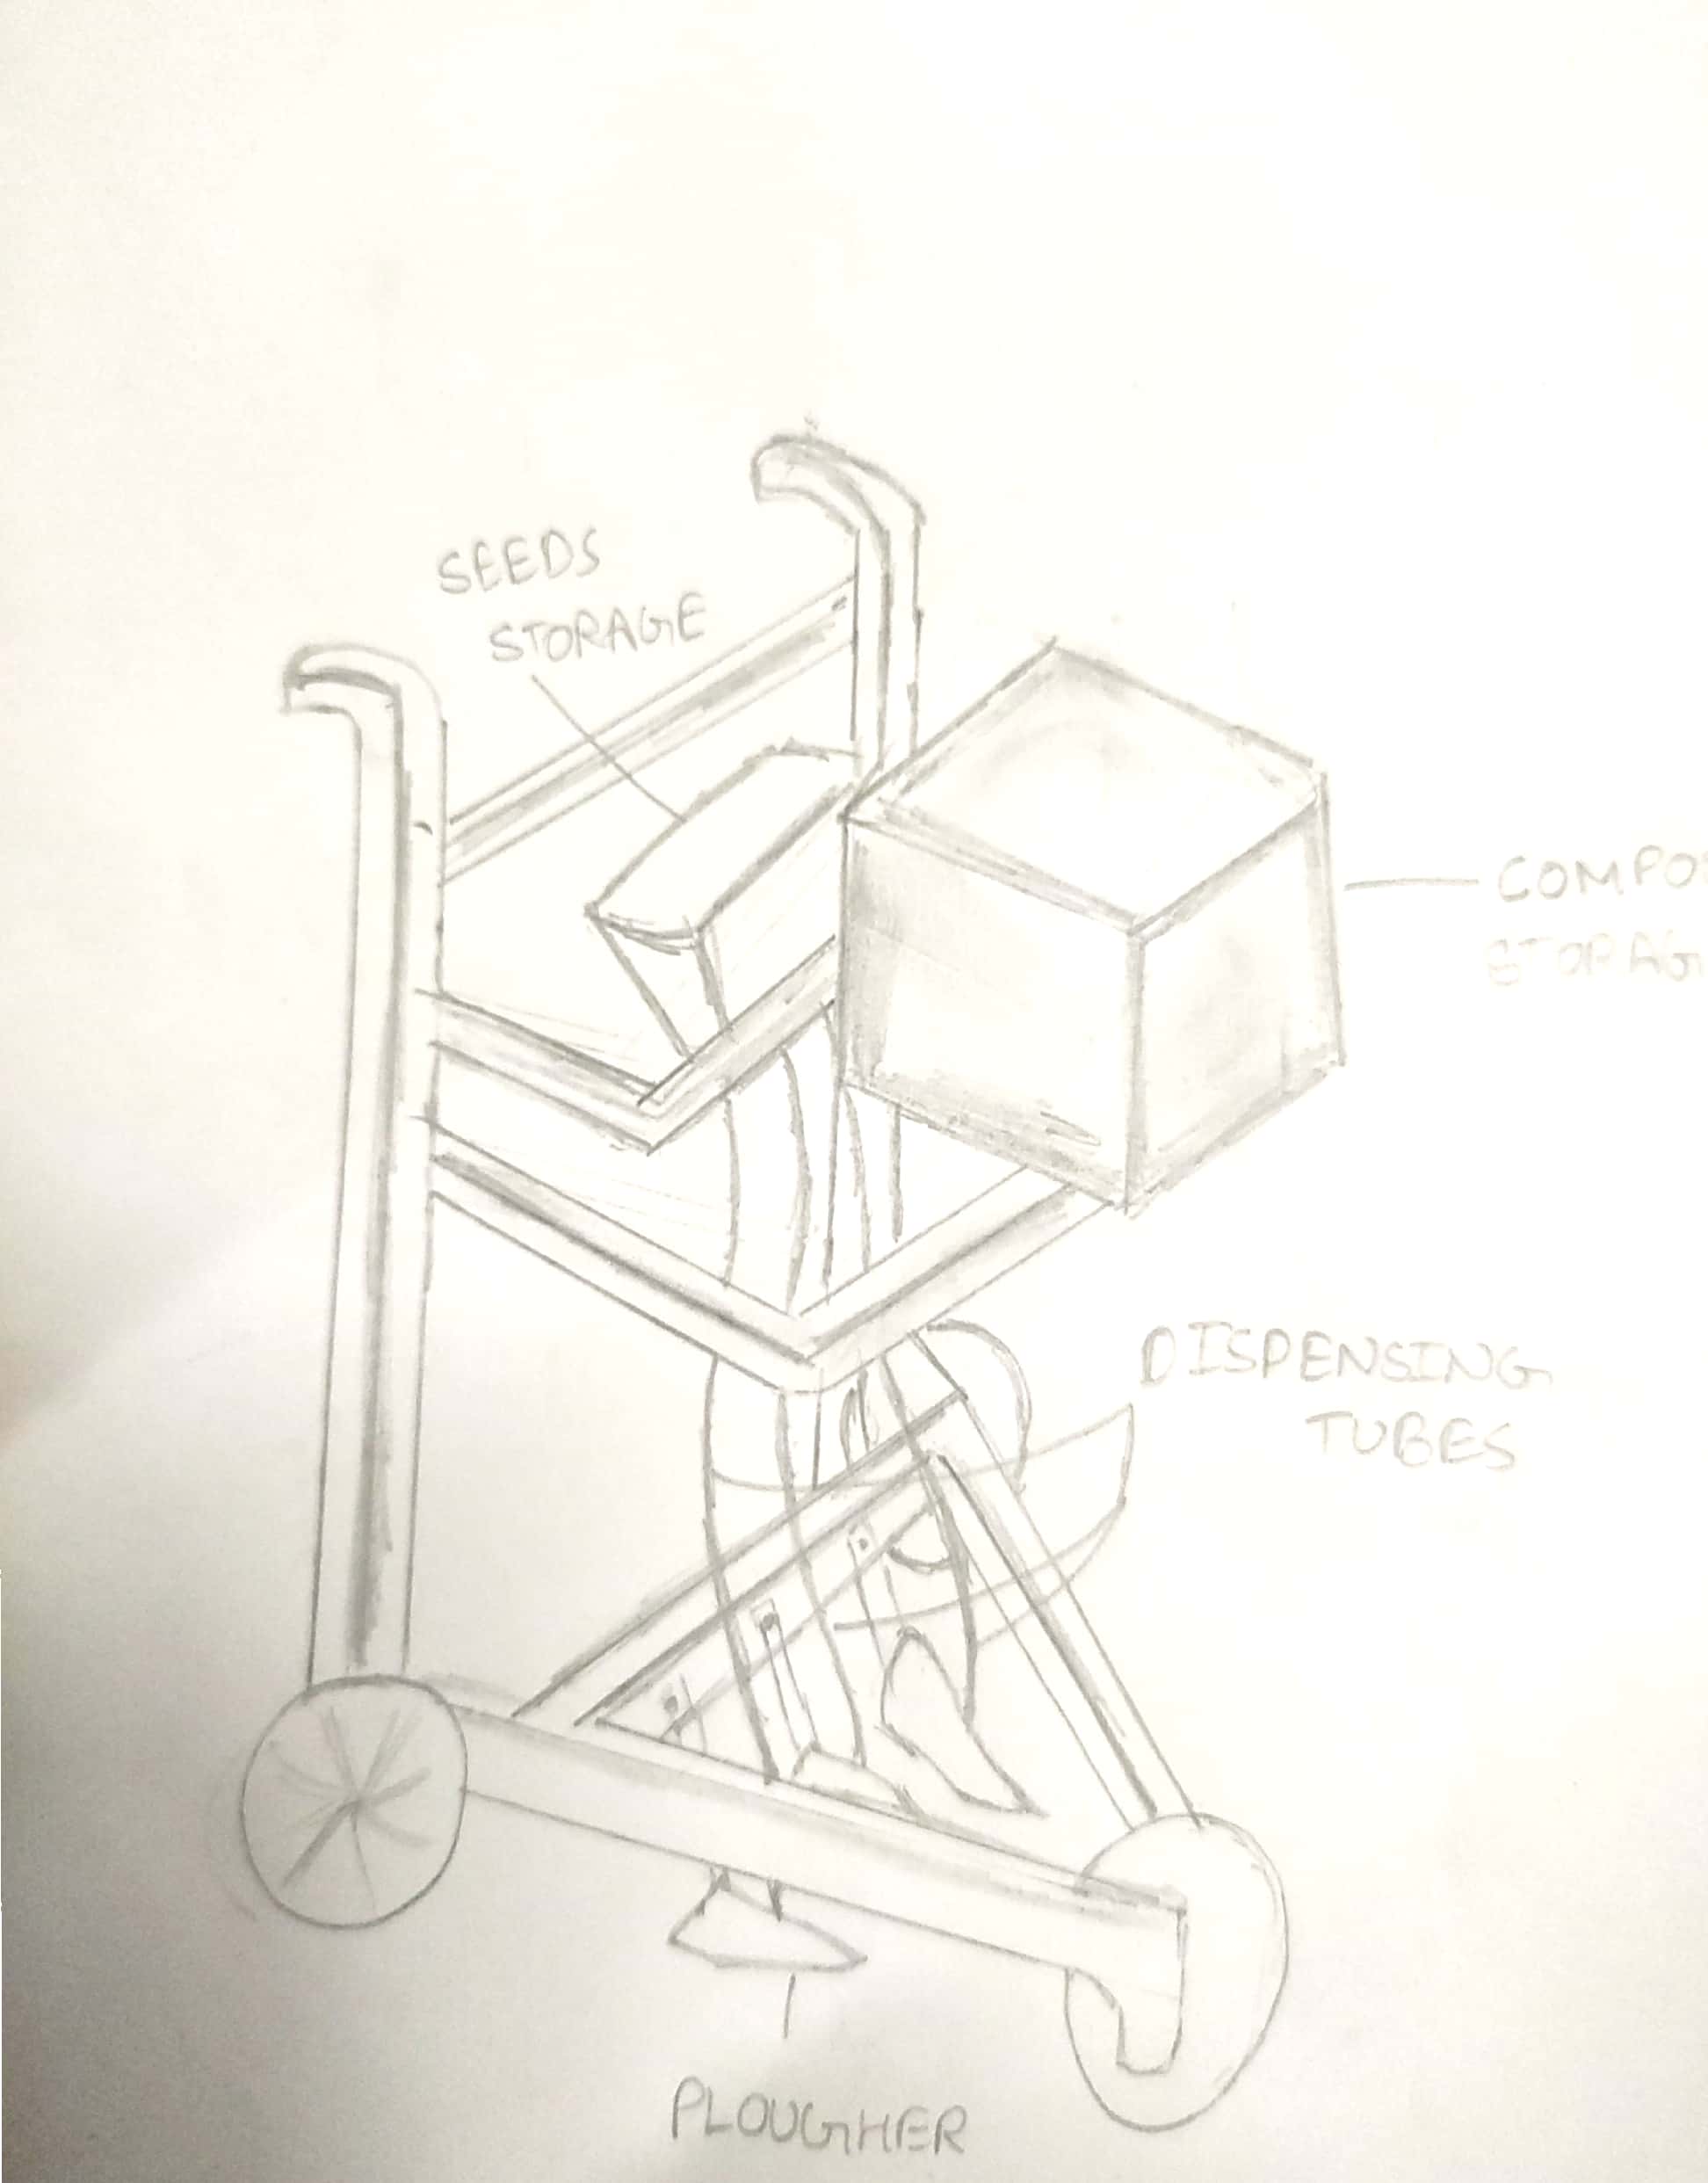 SEEDS
STORAGE
COMPOS
STORAG
DISPENSING
TUBES
PLOUGHER